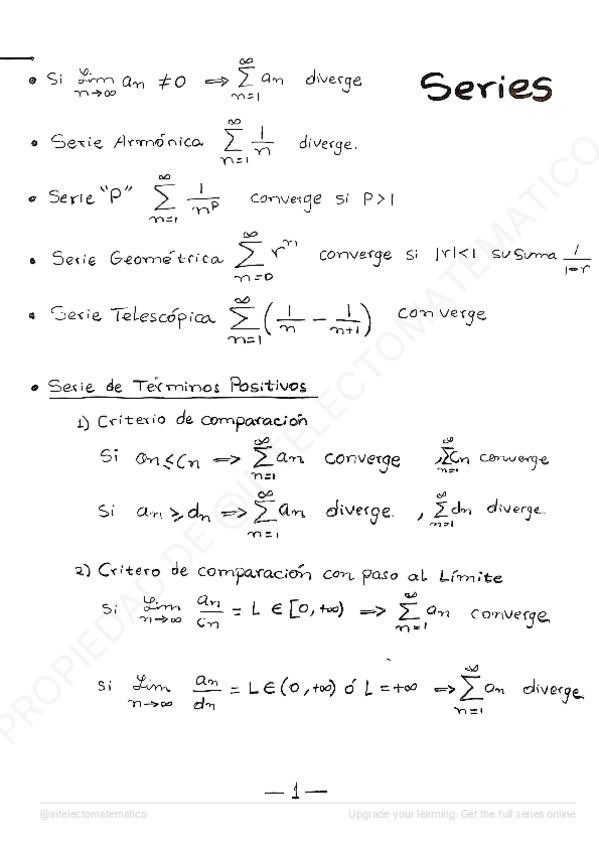 Series
• Si lim n→∞ an ≠ 0 ⇒ ∞ Σ n=1 an diverge
• Serie Armónica ∞ Σ n=1 1/n diverge.
• Serie "P" ∞ Σ n=1 1/n^p converge si P>1
• Serie Geométrica ∞ Σ n=0 r^n converge si |r|<1 su suma 1/1-r
• Serie Telescópica ∞ Σ n=1 (1/n - 1/n+1) converge
• Serie de Términos Positivos
1) Criterio de comparación
Si an ≤ cn ⇒ ∞ Σ n=1 an converge , ∞ Σ n=1 cn converge
Si an ≥ dn ⇒ ∞ Σ n=1 an diverge. , ∞ Σ n=1 dn diverge.
2) Critero de comparación con paso al Límite
Si Lim n→∞ an/cn = L ∈ [0,+∞) ⇒ ∞ Σ n=1 an converge
Si Lim n→∞ an/dn = L∈(0,+∞) ó L=+∞ ⇒ ∞ Σ n=1 an diverge
— 1 —
@intelectomatematico
Upgrade your learning: Get the full series online
PROPIEDAD DE @INTELECTOMATEMATICO